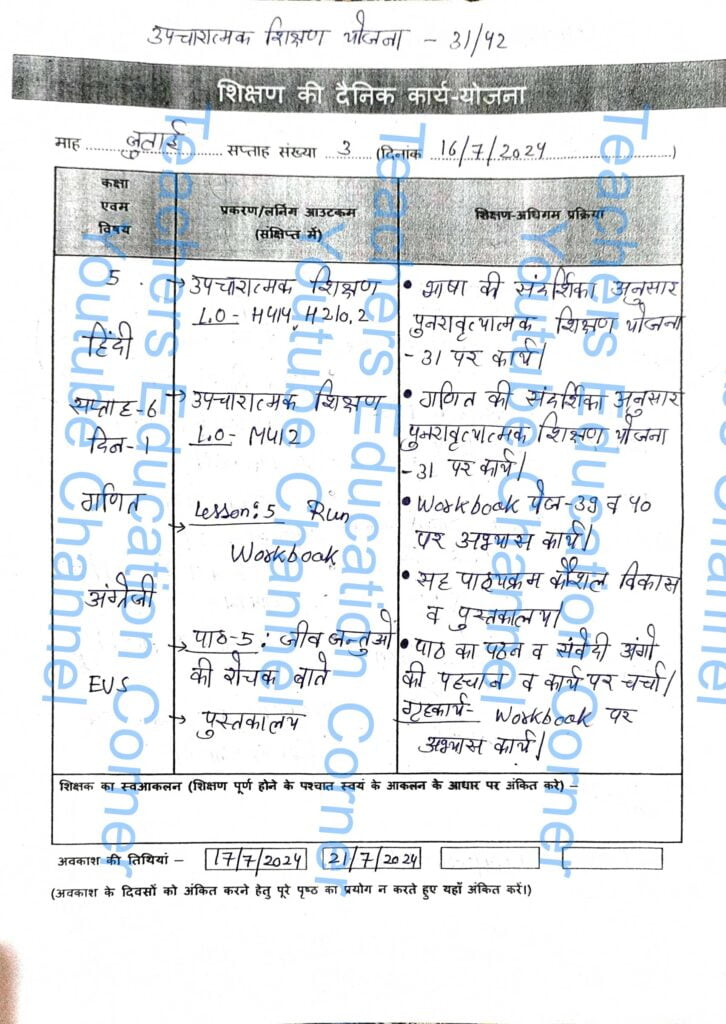 उपचारात्मक शिक्षण योजना - 31/42
शिक्षण की दैनिक कार्य-योजना
माह जुलाई सप्ताह संख्या 3 (दिनांक 16/7/2024)
कक्षा
एवम
विषय
प्रकरण/लर्निंग आउटकम
(संक्षिप्त में)
शिक्षण-अधिगम प्रक्रिया
5
हिंदी
सप्ताह-6
दिन-1
गणित
अंग्रेजी
EVS
→ उपचारात्मक शिक्षण
L.O- H414, H210.2
→ उपचारात्मक शिक्षण
L.O- M412
→ Lesson: 5 Run
Workbook
→ पाठ-5: जीव जन्तुओं
की रोचक बाते
→ पुस्तकालय
• भाषा की संदर्शिका अनुसार
पुनरावृत्यात्मक शिक्षण योजना
-31 पर कार्य।
• गणित की संदर्शिका अनुसार
पुनरावृत्यात्मक शिक्षण योजना
-31 पर कार्य।
• Workbook पेज-39 व 40
पर अभ्यास कार्य।
• सह पाठ्यक्रम कौशल विकास
व पुस्तकालय।
• पाठ का पठन व संवेदी अंगो
की पहचान व कार्य पर चर्चा।
गृहकार्य- Workbook पर
अभ्यास कार्य।
शिक्षक का स्वआकलन (शिक्षण पूर्ण होने के पश्चात स्वयं के आकलन के आधार पर अंकित करे) -
अवकाश की तिथियां - 17/7/2024 21/7/2024
(अवकाश के दिवसों को अंकित करने हेतु पूरे पृष्ठ का प्रयोग न करते हुए यहाँ अंकित करें।)
Teachers Education Corner
Youtube Channel
Teachers Education Corner
Youtube Channel
Teachers Education Corner
Youtube Channel